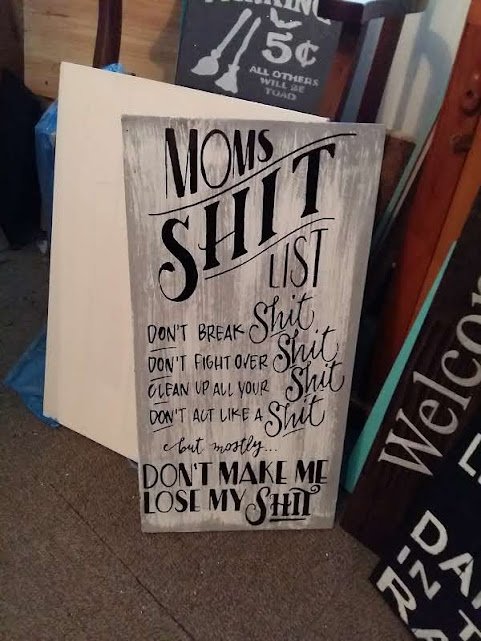 5¢
ALL OTHERS
WILL BE
TOAD
MOMS
SHIT
LIST
DON'T BREAK Shit
DON'T FIGHT OVER Shit
CLEAN UP ALL YOUR Shit
DON'T ACT LIKE A Shit
but mostly...
DON'T MAKE ME
LOSE MY SHIT
Welcom
DA
IN T
RA